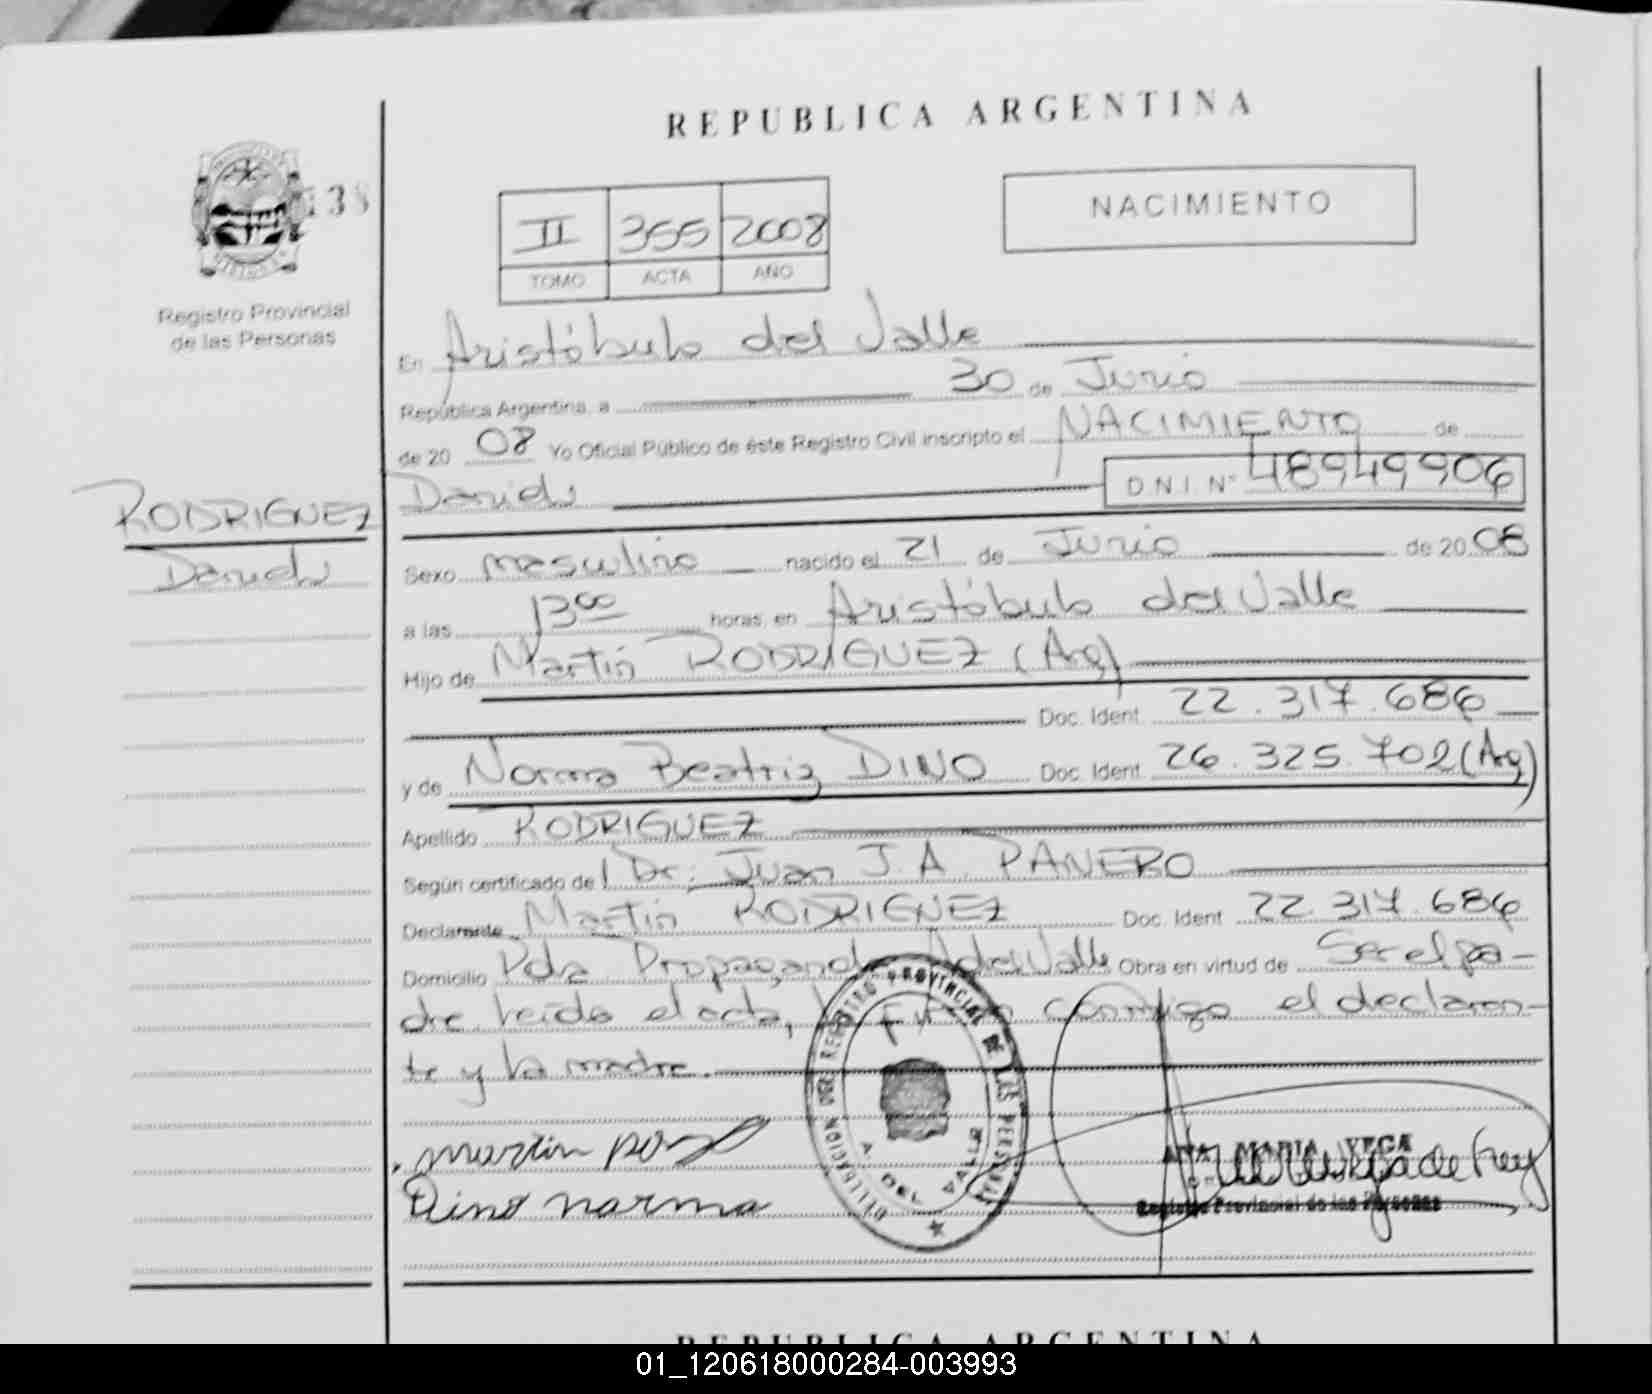 REPUBLICA ARGENTINA
138
Registro Provincial
de las Personas
II 355 2008
TOMO ACTA AÑO
NACIMIENTO
En Aristóbulo del Valle
República Argentina, a 30 de Junio
de 2008 Yo Oficial Público de éste Registro Civil inscripto el NACIMIENTO de
Daniel D.N.I. N° 48949906
RODRIGUEZ
Daniel
Sexo masculino nacido el 21 de Junio de 2008
a las 13°° horas, en Aristóbulo del Valle
Hijo de Martín RODRIGUEZ (Arg)
Doc. Ident. 22.317.686
y de Norma Beatriz DINO Doc. Ident. 26.325.702 (Arg)
Apellido RODRIGUEZ
Según certificado de Dr: Juan J.A. PANERO
Declarante Martín RODRIGUEZ Doc. Ident. 22.317.686
Domicilio Pdz Propaganda A del Valle Obra en virtud de Ser el pa-
dre leída el acta, la firman conmigo el declaran-
te y la madre.
DELEGACION DEL REGISTRO PROVINCIAL DE LAS PERSONAS
A. DEL VALLE
martin
Dino norma
ANA MARIA VEGA
Registro Provincial de las Personas
REPUBLICA ARGENTINA
01_120618000284-003993